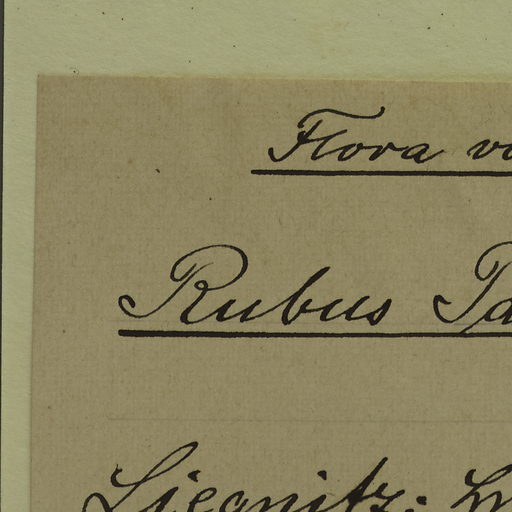 Flora vo
Rubus Pa
Liegnitz: